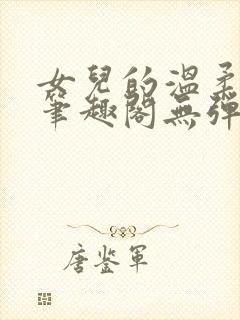 女兒的溫柔
筆趣閣無彈
唐鉴軍